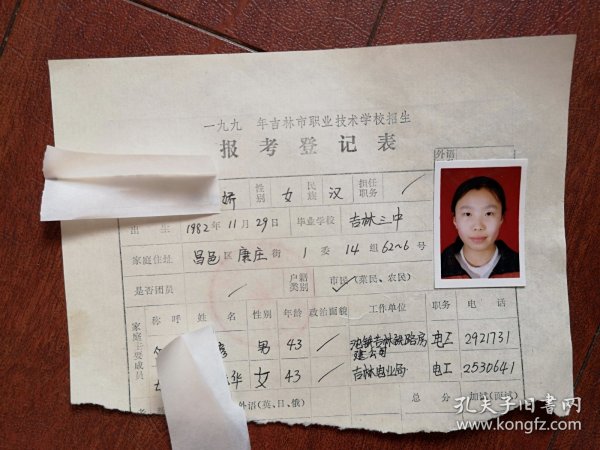 一九九 年吉林市职业技术学校招生
报考登记表
外语
娇 性别 女 民族 汉 担任职务
出生 1982年11月29日 毕业学校 吉林三中
家庭住址 昌邑区 康庄街 1委 14组62~6号
是否团员 户籍类别 市民(菜民、农民)
家庭主要成员 称呼 姓名 性别 年龄 政治面貌 工作单位 职务 电话
男 43 建公司 电工 2921731
华 女 43 吉林电业局 电工 2530641
外语(英、日、俄) 总分 加试(面试)
孔夫子旧书网
www.kongfz.com